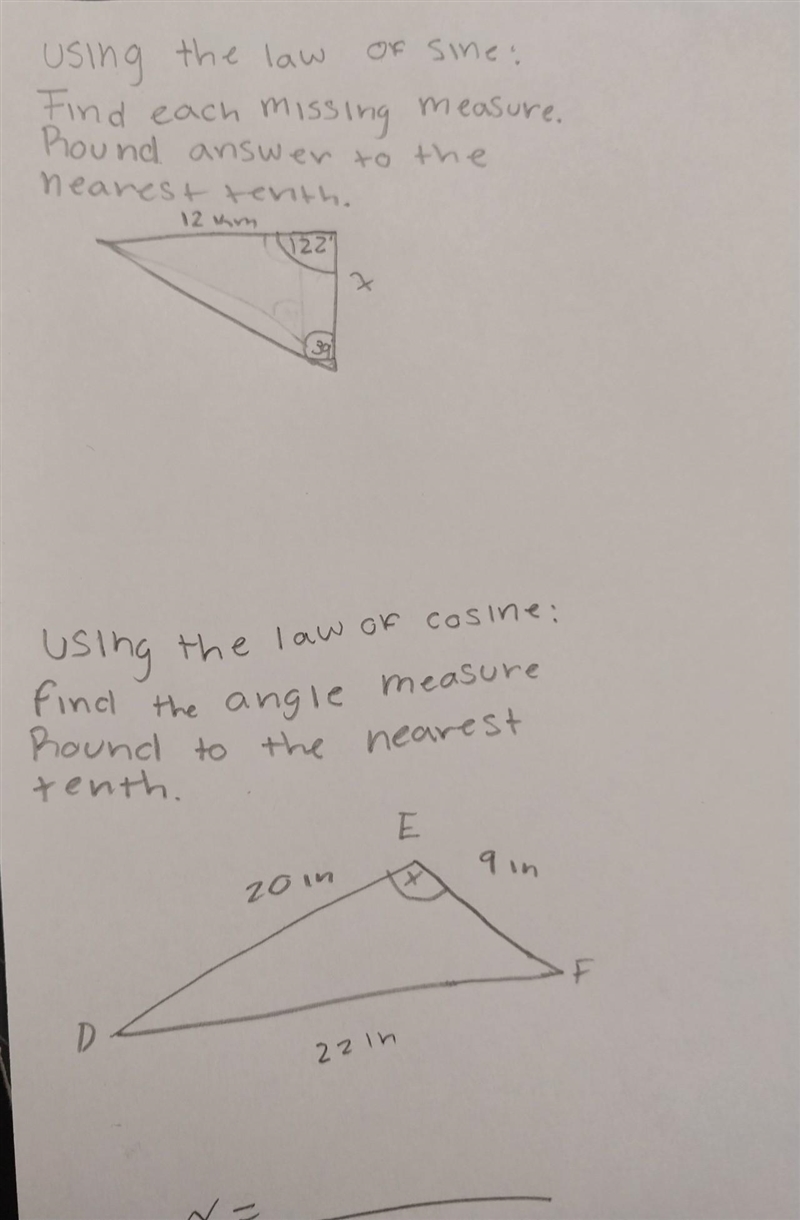 Using the law of sine:
Find each missing measure.
Round answer to the
nearest tenth.
12 km
122°
x
39
Using the law of cosine:
find the angle measure
Round to the nearest
tenth.
E
20 in
x
9 in
F
D
22 in
x =